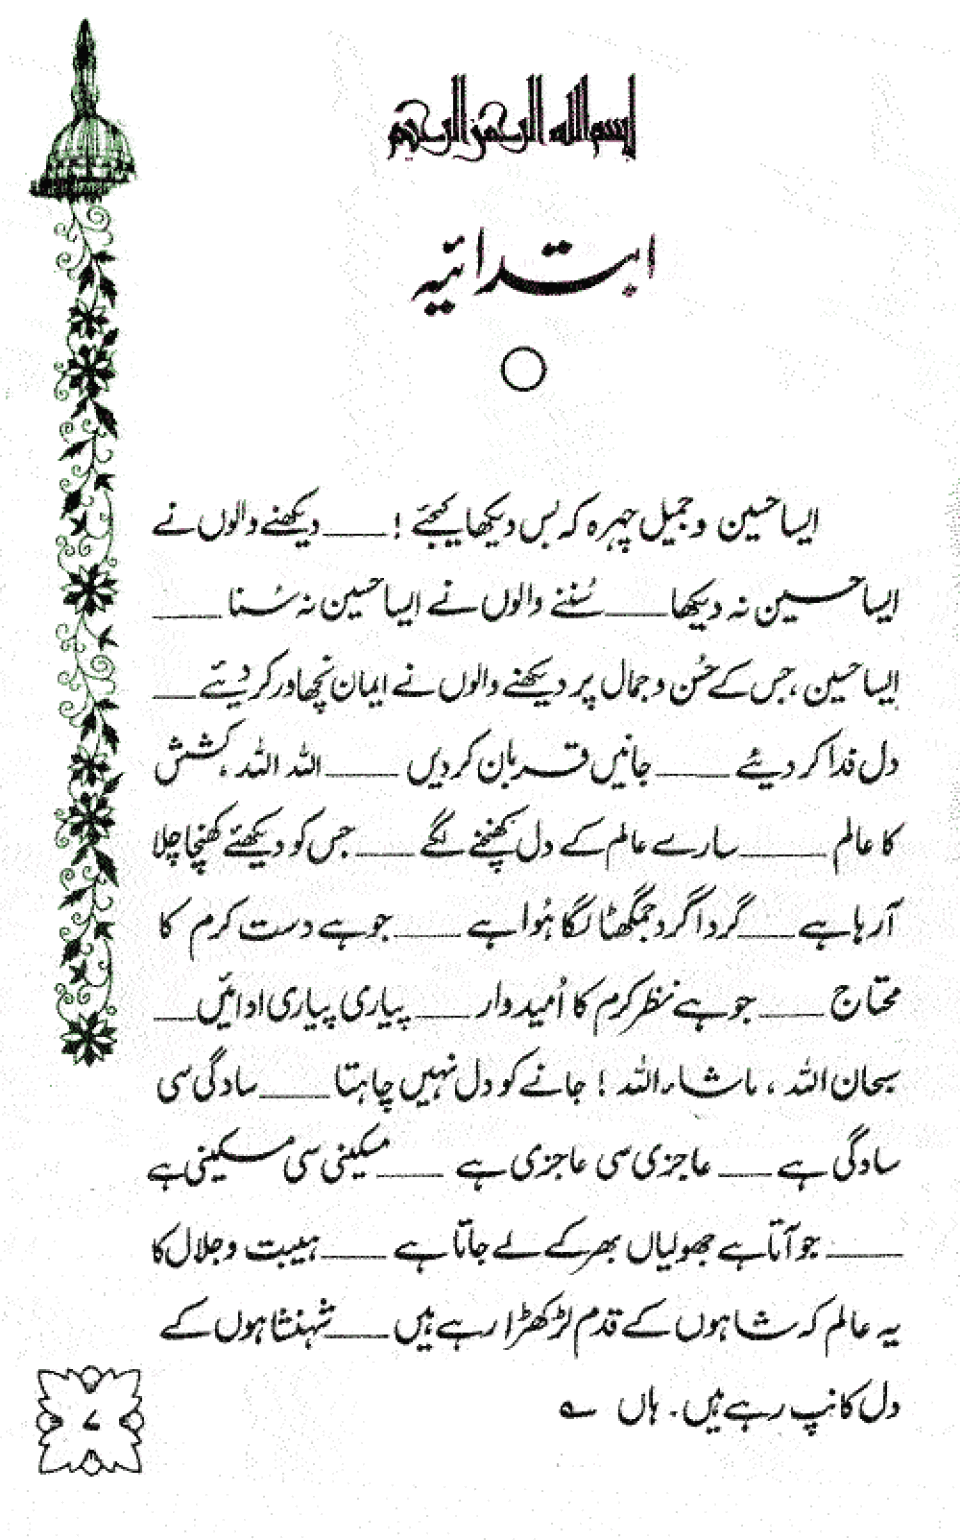 بسم اللہ الرحمن الرحیم
ابتدائیہ
ایسا حسین و جمیل چہرہ کہ بس دیکھا کیجئے ! ــــ دیکھنے والوں نے
ایسا حسین نہ دیکھا ــــ سُننے والوں نے ایسا حسین نہ سُنا ــــ
ایسا حسین ، جس کے حُسن و جمال پر دیکھنے والوں نے ایمان نچھاور کر دیئے ــــ
دل فدا کر دیئے ــــ جانیں قربان کر دیں ــــ اللہ اللہ ، کشش
کا عالم ــــ سارے عالم کے دل کھنچنے لگے ــــ جس کو دیکھئے کھنچا چلا
آرہا ہے ــــ گردا گرد جمگھٹا لگا ہُوا ہے ــــ جو ہے دست کرم کا
محتاج ــــ جو ہے نظر کرم کا اُمیدوار ــــ پیاری پیاری ادائیں ــــ
سبحان اللہ ، ماشاء اللہ ! جانے کو دل نہیں چاہتا ــــ سادگی سی
سادگی ہے ــــ عاجزی سی عاجزی ہے ــــ مسکینی سی مسکینی ہے
ــــ جو آتا ہے جھولیاں بھر کے لے جاتا ہے ــــ ہیبت و جلال کا
یہ عالم کہ شاہوں کے قدم لڑکھڑا رہے ہیں ــــ شہنشاہوں کے
دل کانپ رہے ہیں۔ ہاں ؎
۷